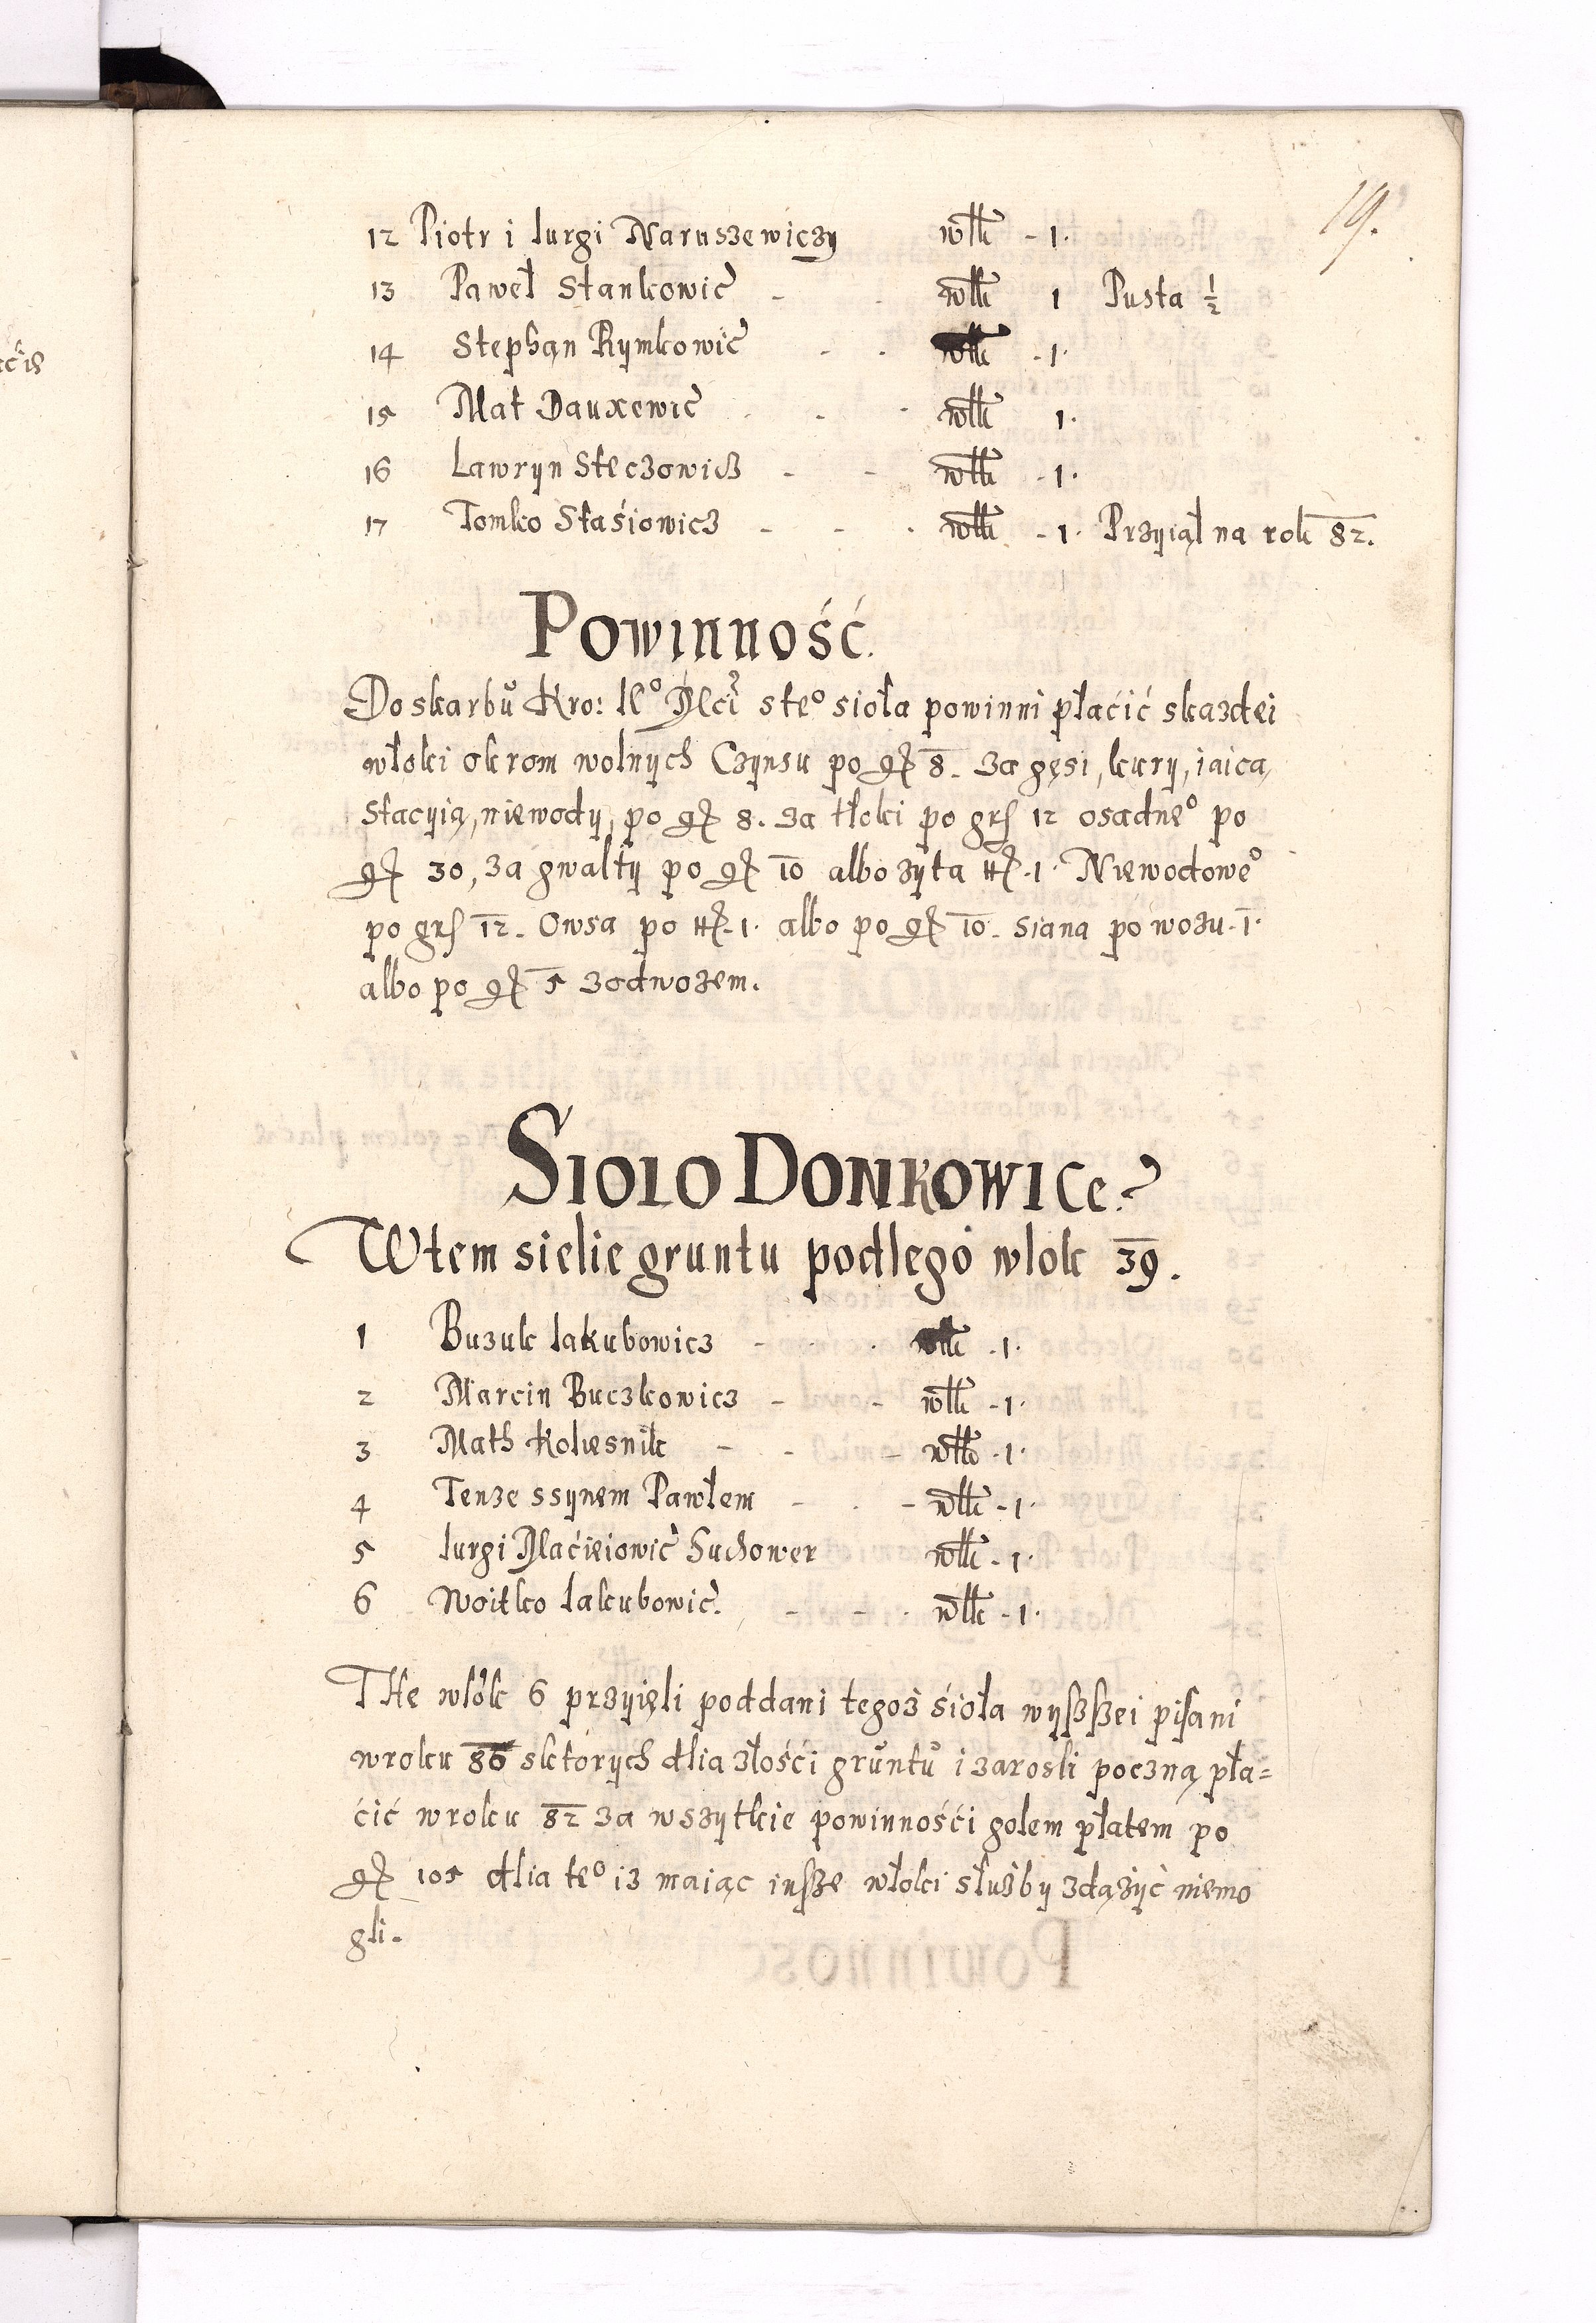 19.
12 Piotr i Iurgi Naruszewiczy włk - 1.
13 Paweł Stankowic̀ - - włk 1 Pusta ½
14 Stephąn Rymkowic̀ - - włk - 1.
15 Mat Dauxewic̀ - - - włk 1.
16 Lawryn Steczowicz - - włk - 1.
17 Tomko Staśiowicz - - - włk - 1. Przyiął na rok 82.
Powinność.
Do skarbů Kro: Ie° Mci ste° sioła powinni płaćić skazdei
włoki okrom wolnych Czynsu po gr 8. Za gęsi, kury, iaica,
Stacyią, niewody, po gr 8. Za tłoki po grs 12 osadne° po
gr 30, za gwałty po gr 10 albo zyta 1. Niewodowe°
po grs 12. Owsa po 1. albo po gr 10. Siana po wozu - 1.
albo po gr 5 zodwozem.
Siolo Donkowice.
Wtem sielie gruntu podlego wlok 39.
1 Buzuk Iakubowicz - - - włk - 1.
2 Marcin Buczkowicz - - włk - 1.
3 Math Koliesnik - - - włk - 1.
4 Tenze ssynem Pawłem - - - włk - 1.
5 Iurgi Maćieiowic̀ Suchower włk - 1.
6 Woitko Iakubowic̀. - - - włk - 1.
THe włók 6 przyięli poddani tegoż śioła wyszszei pisani
wroku 80 sktorych dlia złośći grůntů i zarosli poczną pła=
ćić wroku 82 za wszytkie powinnośći gołem płatem po
gr 105 dlia te° iz maiąc insze włoki służby zdążyć niemo
gli.